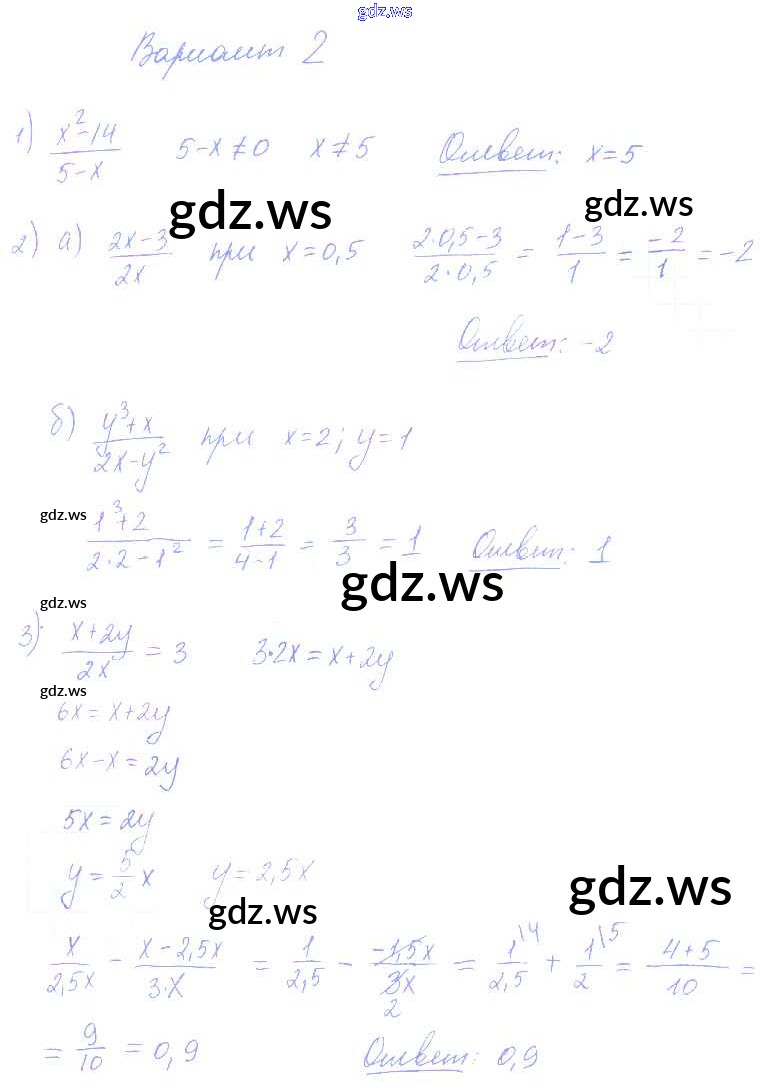 gdz.ws
Вариант 2
1) (x²-14)/(5-x) 5-x≠0 x≠5 Ответ: x=5
gdz.ws gdz.ws
2) а) (2x-3)/(2x) при x=0,5 (2·0,5-3)/(2·0,5) = (1-3)/1 = (-2)/1 = -2
Ответ: -2
б) (y³+x)/(2x-y²) при x=2; y=1
gdz.ws
(1³+2)/(2·2-1²) = (1+2)/(4-1) = 3/3 = 1 Ответ: 1
gdz.ws
gdz.ws
3) (x+2y)/(2x) = 3 3·2x = x+2y
gdz.ws
6x = x+2y
6x-x = 2y
5x = 2y
y = 5/2 x y = 2,5x
gdz.ws
gdz.ws
x/(2,5x) - (x-2,5x)/(3·x) = 1/2,5 - (-1,5x)/(3x) 2 = 1\4/2,5 + 1\5/2 = (4+5)/10 =
= 9/10 = 0,9 Ответ: 0,9